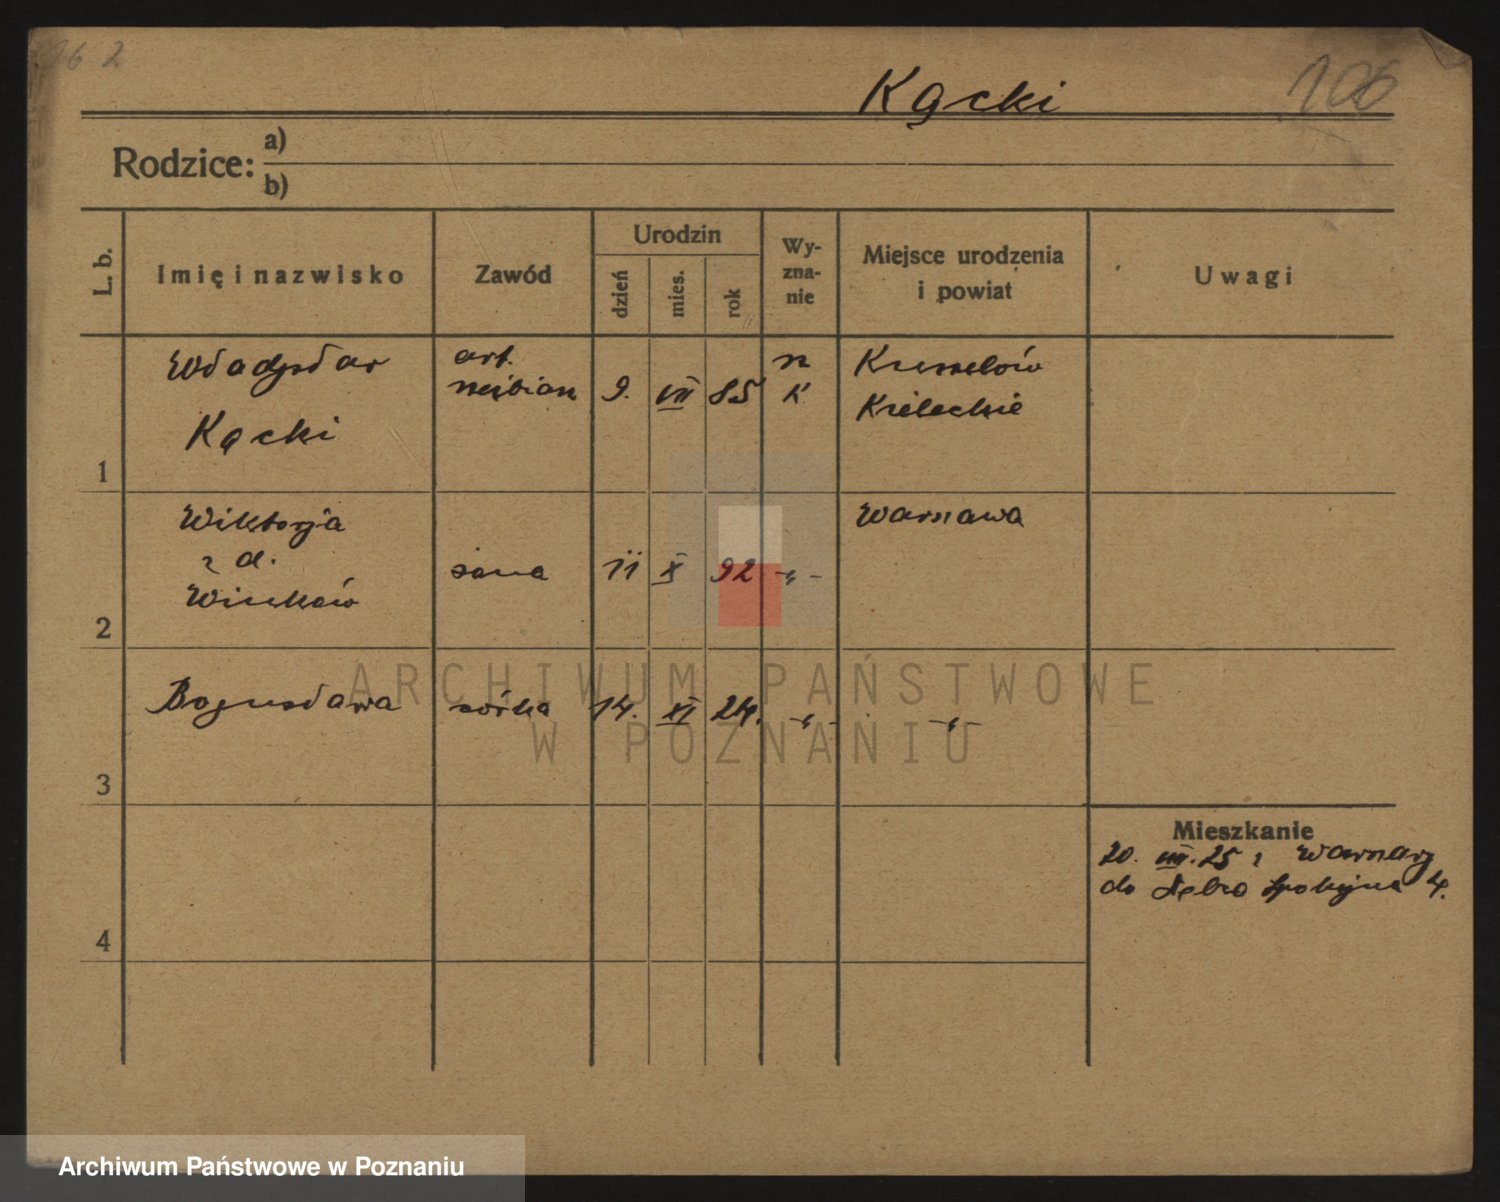 162
Kącki
106
Rodzice: a)
b)
L. b.
Imię i nazwisko
Zawód
Urodzin
dzień
mies.
rok
Wy-
zna-
nie
Miejsce urodzenia
i powiat
Uwagi
1
Władysław
Kącki
art.
9. VII 85
K
Kieleckie
2
Wiktorja
z d.
żona
11 X 92 -"-
Warszawa
3
Bogusława
córka
14. XI 24. -"- -"-
4
Mieszkanie
20. VIII. 25 z Warszawy
do Spokojna 4.
ARCHIWUM PAŃSTWOWE
W POZNANIU
Archiwum Państwowe w Poznaniu